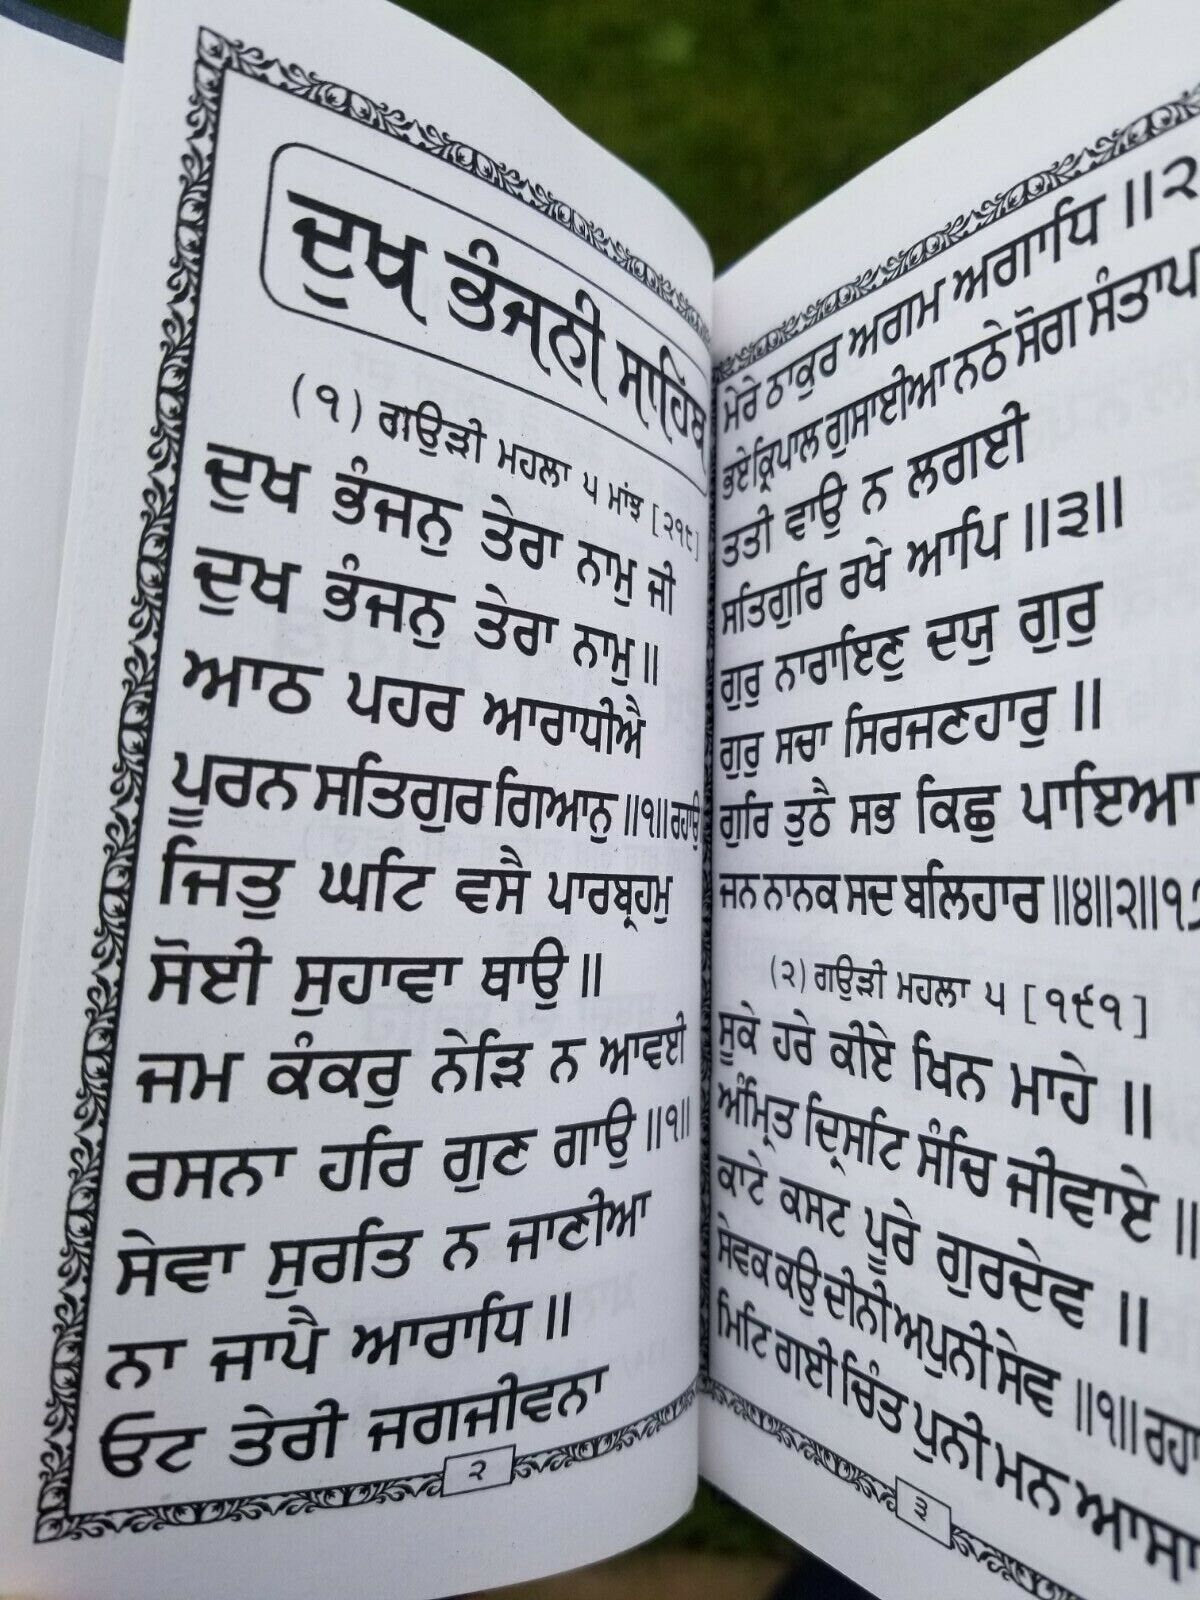 ਦੁਖ ਭੰਜਨੀ ਸਾਹਿਬ
(੧) ਗਉੜੀ ਮਹਲਾ ੫ ਮਾਂਝ [੨੧੮]
ਦੁਖ ਭੰਜਨੁ ਤੇਰਾ ਨਾਮੁ ਜੀ
ਦੁਖ ਭੰਜਨੁ ਤੇਰਾ ਨਾਮੁ ॥
ਆਠ ਪਹਰ ਆਰਾਧੀਐ
ਪੂਰਨ ਸਤਿਗੁਰ ਗਿਆਨੁ ॥੧॥ ਰਹਾਉ
ਜਿਤੁ ਘਟਿ ਵਸੈ ਪਾਰਬ੍ਰਹਮੁ
ਸੋਈ ਸੁਹਾਵਾ ਥਾਉ ॥
ਜਮ ਕੰਕਰੁ ਨੇੜਿ ਨ ਆਵਈ
ਰਸਨਾ ਹਰਿ ਗੁਣ ਗਾਉ ॥੧॥
ਸੇਵਾ ਸੁਰਤਿ ਨ ਜਾਣੀਆ
ਨਾ ਜਾਪੈ ਆਰਾਧਿ ॥
ਓਟ ਤੇਰੀ ਜਗਜੀਵਨਾ
੨
ਮੇਰੇ ਠਾਕੁਰ ਅਗਮ ਅਗਾਧਿ ॥੨
ਭਏ ਕ੍ਰਿਪਾਲ ਗੁਸਾਈਆ ਨਠੇ ਸੋਗ ਸੰਤਾਪ
ਤਤੀ ਵਾਉ ਨ ਲਗਈ
ਸਤਿਗੁਰਿ ਰਖੇ ਆਪਿ ॥੩॥
ਗੁਰੁ ਨਾਰਾਇਣੁ ਦਯੁ ਗੁਰੁ
ਗੁਰੁ ਸਚਾ ਸਿਰਜਣਹਾਰੁ ॥
ਗੁਰਿ ਤੁਠੈ ਸਭ ਕਿਛੁ ਪਾਇਆ
ਜਨ ਨਾਨਕ ਸਦ ਬਲਿਹਾਰ ॥੪॥੨॥੧
(੨) ਗਉੜੀ ਮਹਲਾ ੫ [੧੯੧]
ਸੂਕੇ ਹਰੇ ਕੀਏ ਖਿਨ ਮਾਹੇ ॥
ਅੰਮ੍ਰਿਤ ਦ੍ਰਿਸਟਿ ਸੰਚਿ ਜੀਵਾਏ ॥
ਕਾਟੇ ਕਸਟ ਪੂਰੇ ਗੁਰਦੇਵ ॥
ਸੇਵਕ ਕਉ ਦੀਨੀ ਅਪੁਨੀ ਸੇਵ ॥੧॥ ਰਹਾ
ਮਿਟਿ ਗਈ ਚਿੰਤ ਪੁਨੀ ਮਨ ਆਸਾ
੩